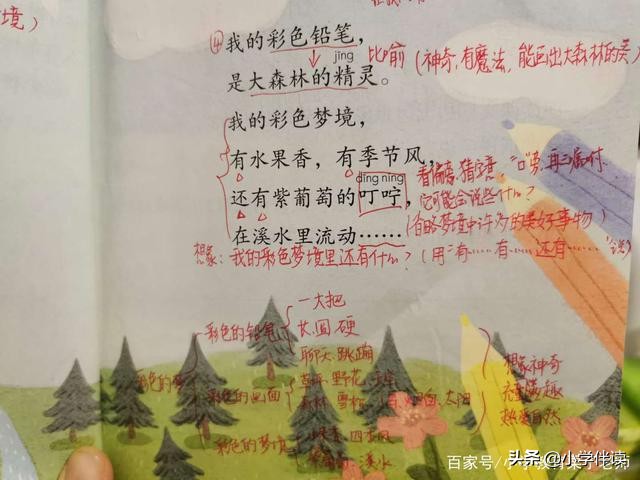 境）
④我的彩色铅笔，
jīng 比喻
是大森林的精灵。
（神奇，有魔法，能画出大森林的美）
我的彩色梦境，
有水果香，有季节风，
dīng níng
还有紫葡萄的叮咛，
看偏旁，猜字意
它可能会说些什么？
在溪水里流动……
（省略梦境中许多的美好事物）
想象：我的彩色梦境里还有什么？（用“有……有……还有……”说）
一大把
彩色的铅笔 长、圆、硬
聊天、跳蹦
彩色的
彩色的画面 野花
森林 雪松 太阳
彩色的梦境 四季风
溪水
想象神奇
充满
热爱自然
百家号/小学教育
头条 @小学伴读